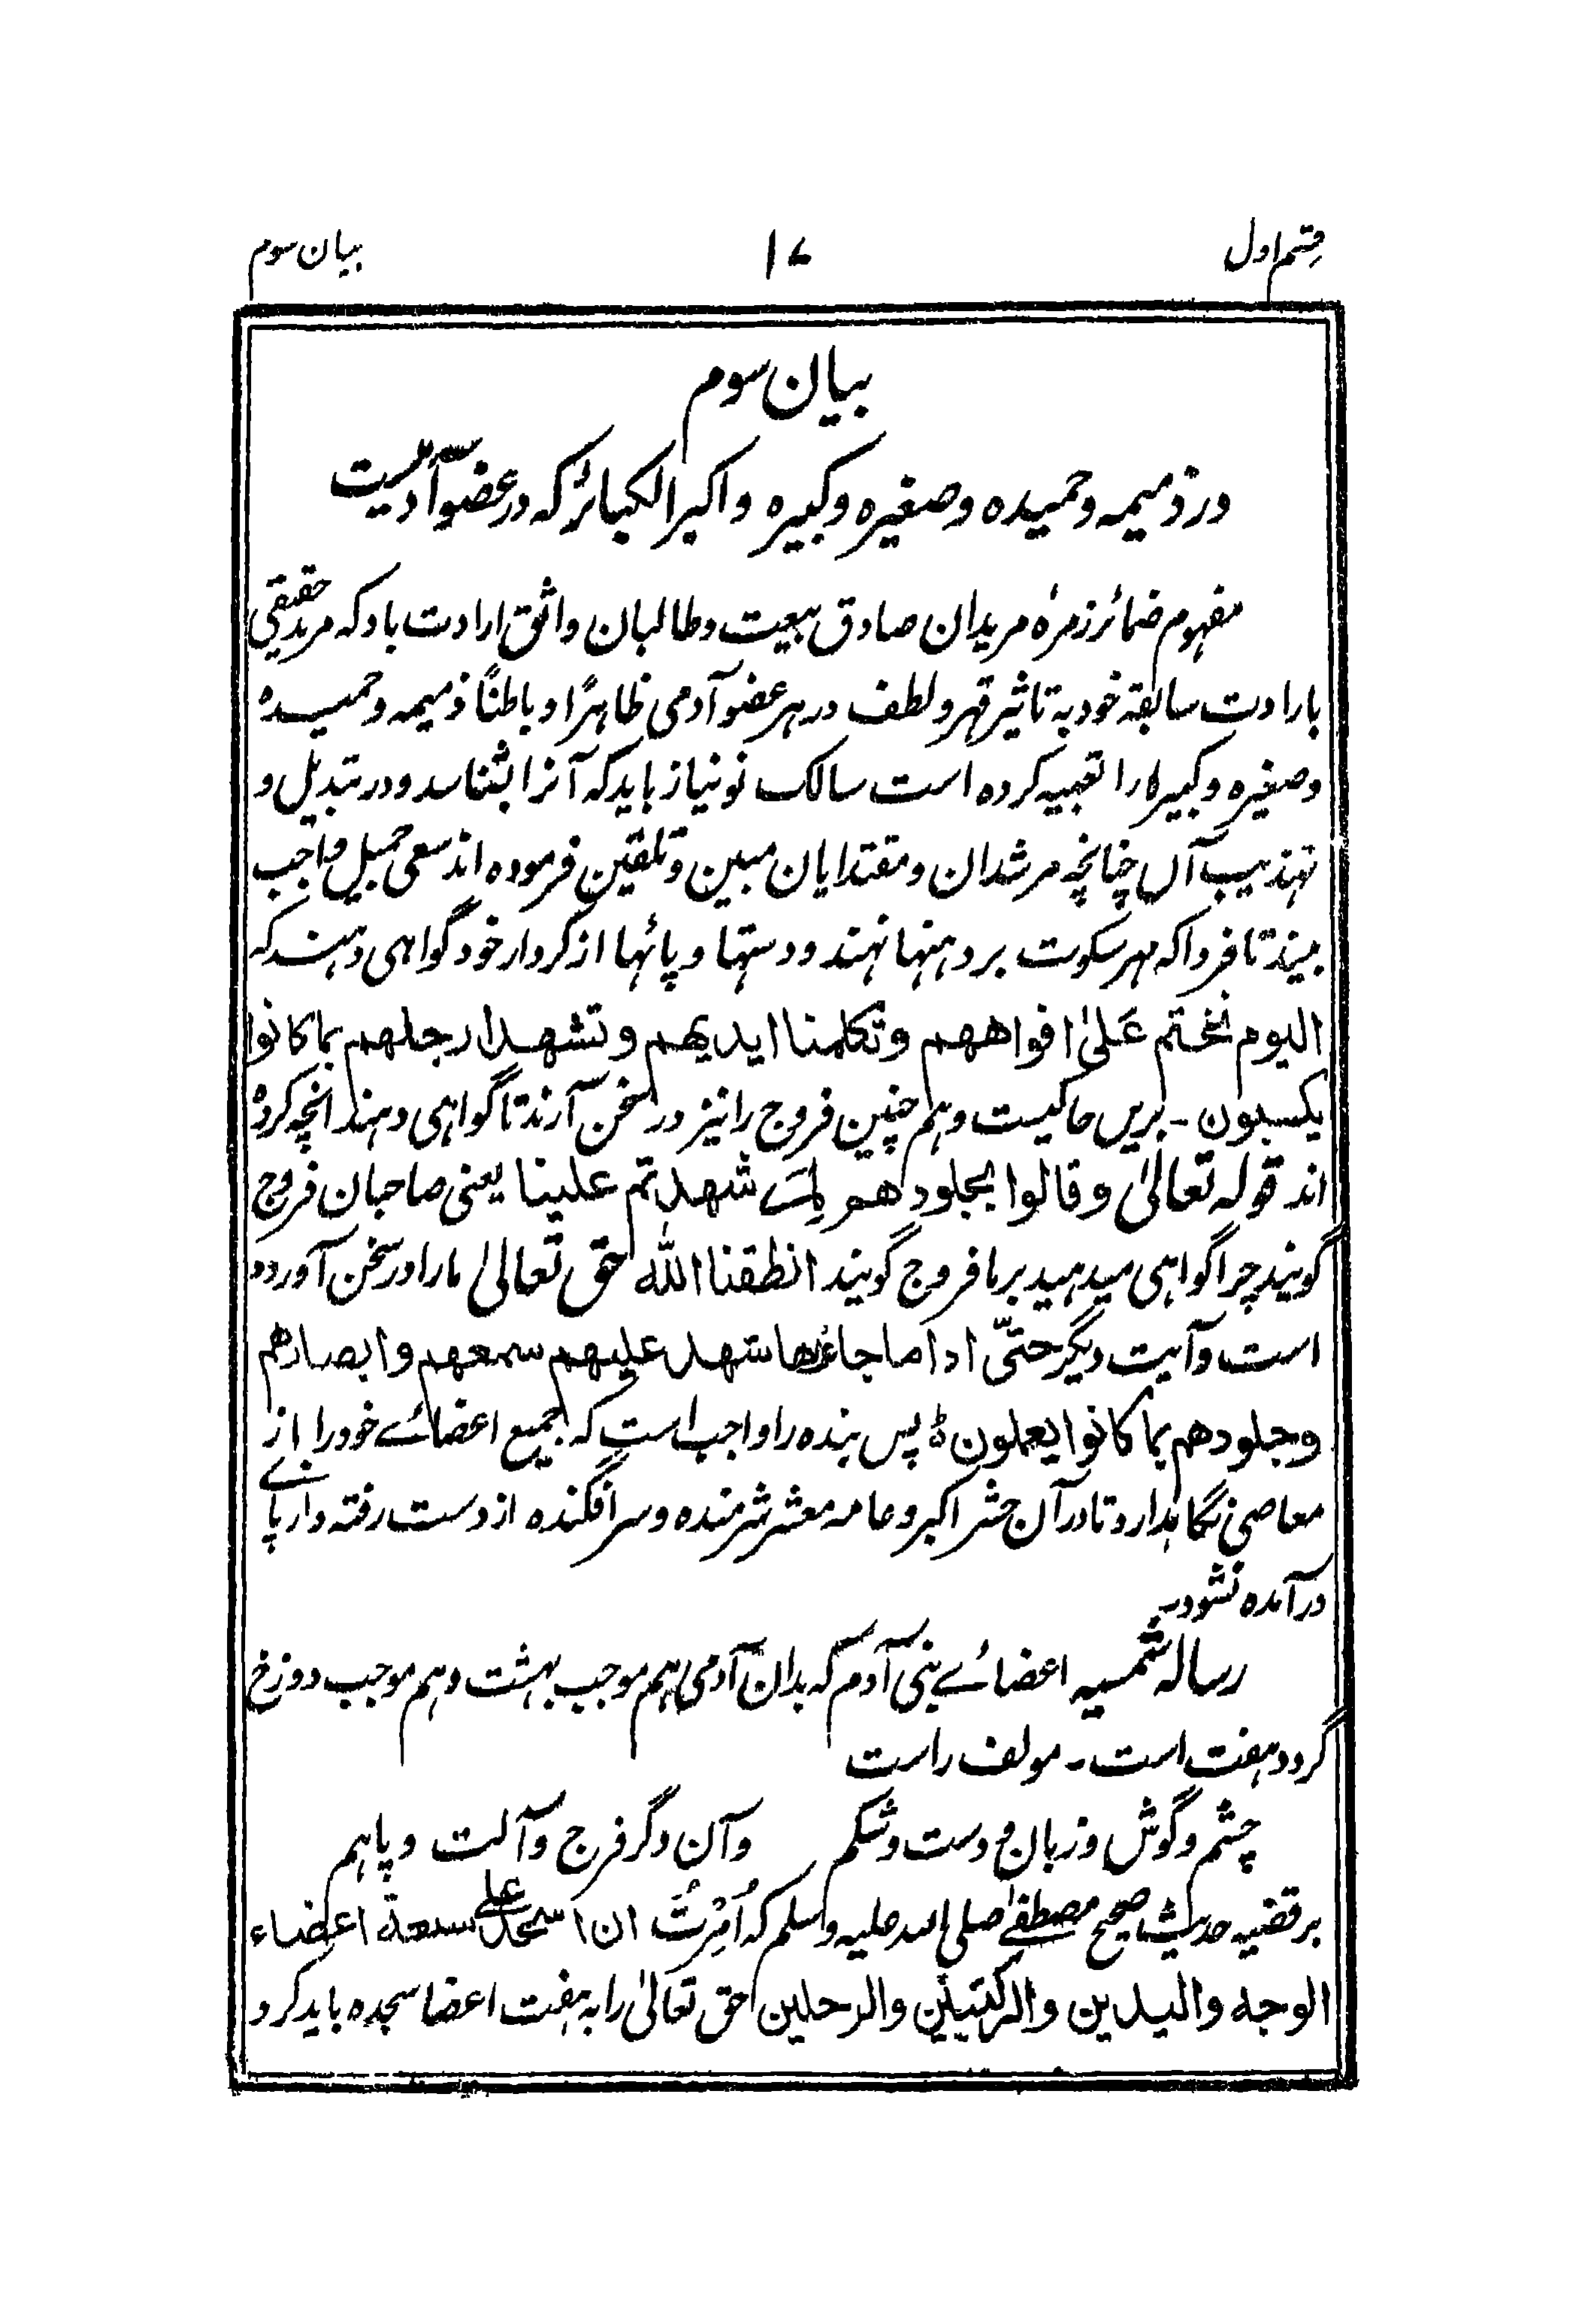 قسم اول ۱۷ بیان سوم
بیان سوم
در ذمیمہ وحمیدہ وصغیرہ وکبیرہ واکبر الکبائر کہ در عضو آدمیست
مفہوم ضمائر زمرۂ مریدان صادق بیعت وطالبان واثق ارادت باد کہ مرید حقیقی
بارادت سابقۂ خود بہ تاثیر قہر ولطف در ہر عضو آدمی ظاہرًا وباطنًا ذمیمہ وحمیدہ
وصغیرہ وکبیرہ را تعبیہ کردہ است سالک نو نیاز باید کہ آنرا بشناسد ودر تبدیل و
تہذیب آں چنانچہ مرشدان ومقتدایان مبین وتلقین فرمودہ اند سعی جمیل واجب
بیند تا فردا کہ مہر سکوت بر دہنہا نہند ودستہا وپائہا از کردار خود گواہی دہند کہ
الیوم نختم عَلیٰ افواههم وتکلمنا ایدیهم وتشهد ارجلهم بما کانوا
یکسبون ۔ بریں حاکیست وہم چنین فروج را نیز در سخن آرند تا گواہی دہند انچہ کردہ
اند قوله تعالیٰ وقالوا لجلودهم لِمَ شهدتم علینا یعنی صاحبان فروج
گویند چرا گواہی میدہید بر ما فروج گویند انطقنا الله حق تعالیٰ مارا در سخن آوردہ
است وآیت دیگر حتّی اذا ما جاءُها شهد علیهم سمعهم وابصارهم
وجلودهم بما کانوا یعملون ۵ پس بندہ را واجب است کہ جمیع اعضائے خود را از
معاصی نگاہدارد تا در آن حشر اکبر وعامہ معشر شرمندہ وسر افگندہ از دست رفتہ وار پائے
در آمدہ نشود۔
رسالہ شمسیہ اعضائے بنی آدم کہ بدان آدمی را ہم موجب بہشت وہم موجب دوزخ
گردد ہفت است ۔ مولف راست
چشم وگوش وزبان ودست وشکم وآن دگر فرج وآلت وپا ہم
بر قضیہ حدیث صحیح مصطفےٰ صلی اللہ علیہ وسلم کہ اُمِرْتُ ان اسجد علی سبعة اعضاء
الوجه والیدین والرکبتین والرجلین حق تعالیٰ را بہ ہفت اعضا سجدہ باید کرد